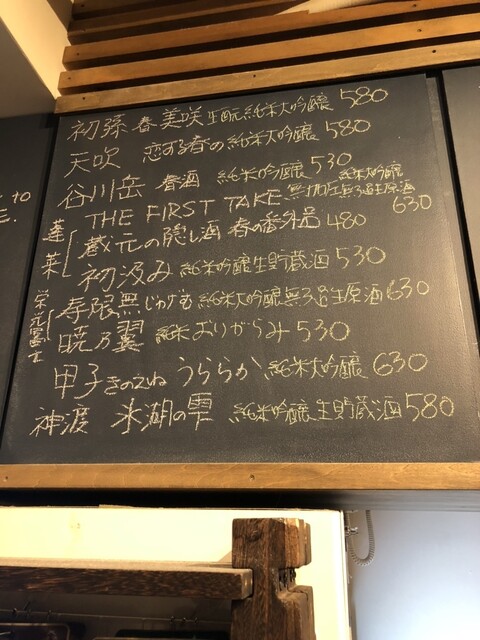 初孫 春美咲 生酛純米大吟醸 580
天吹 恋する春の純米大吟醸 580
谷川岳 春酒 純米吟醸 530
純米大吟醸
THE FIRST TAKE 無加圧無ろ過生原酒 630
蓬莱
蔵元の隠し酒 春の番外品 480
初汲み 純米吟醸生貯蔵酒 530
栄光冨士
寿限無 じゅげむ 純米大吟醸無ろ過生原酒 630
暁乃翼 純米おりがらみ 530
甲子きのえね うららか 純米大吟醸 630
神渡 氷湖の雫 純米吟醸生貯蔵酒 580
to